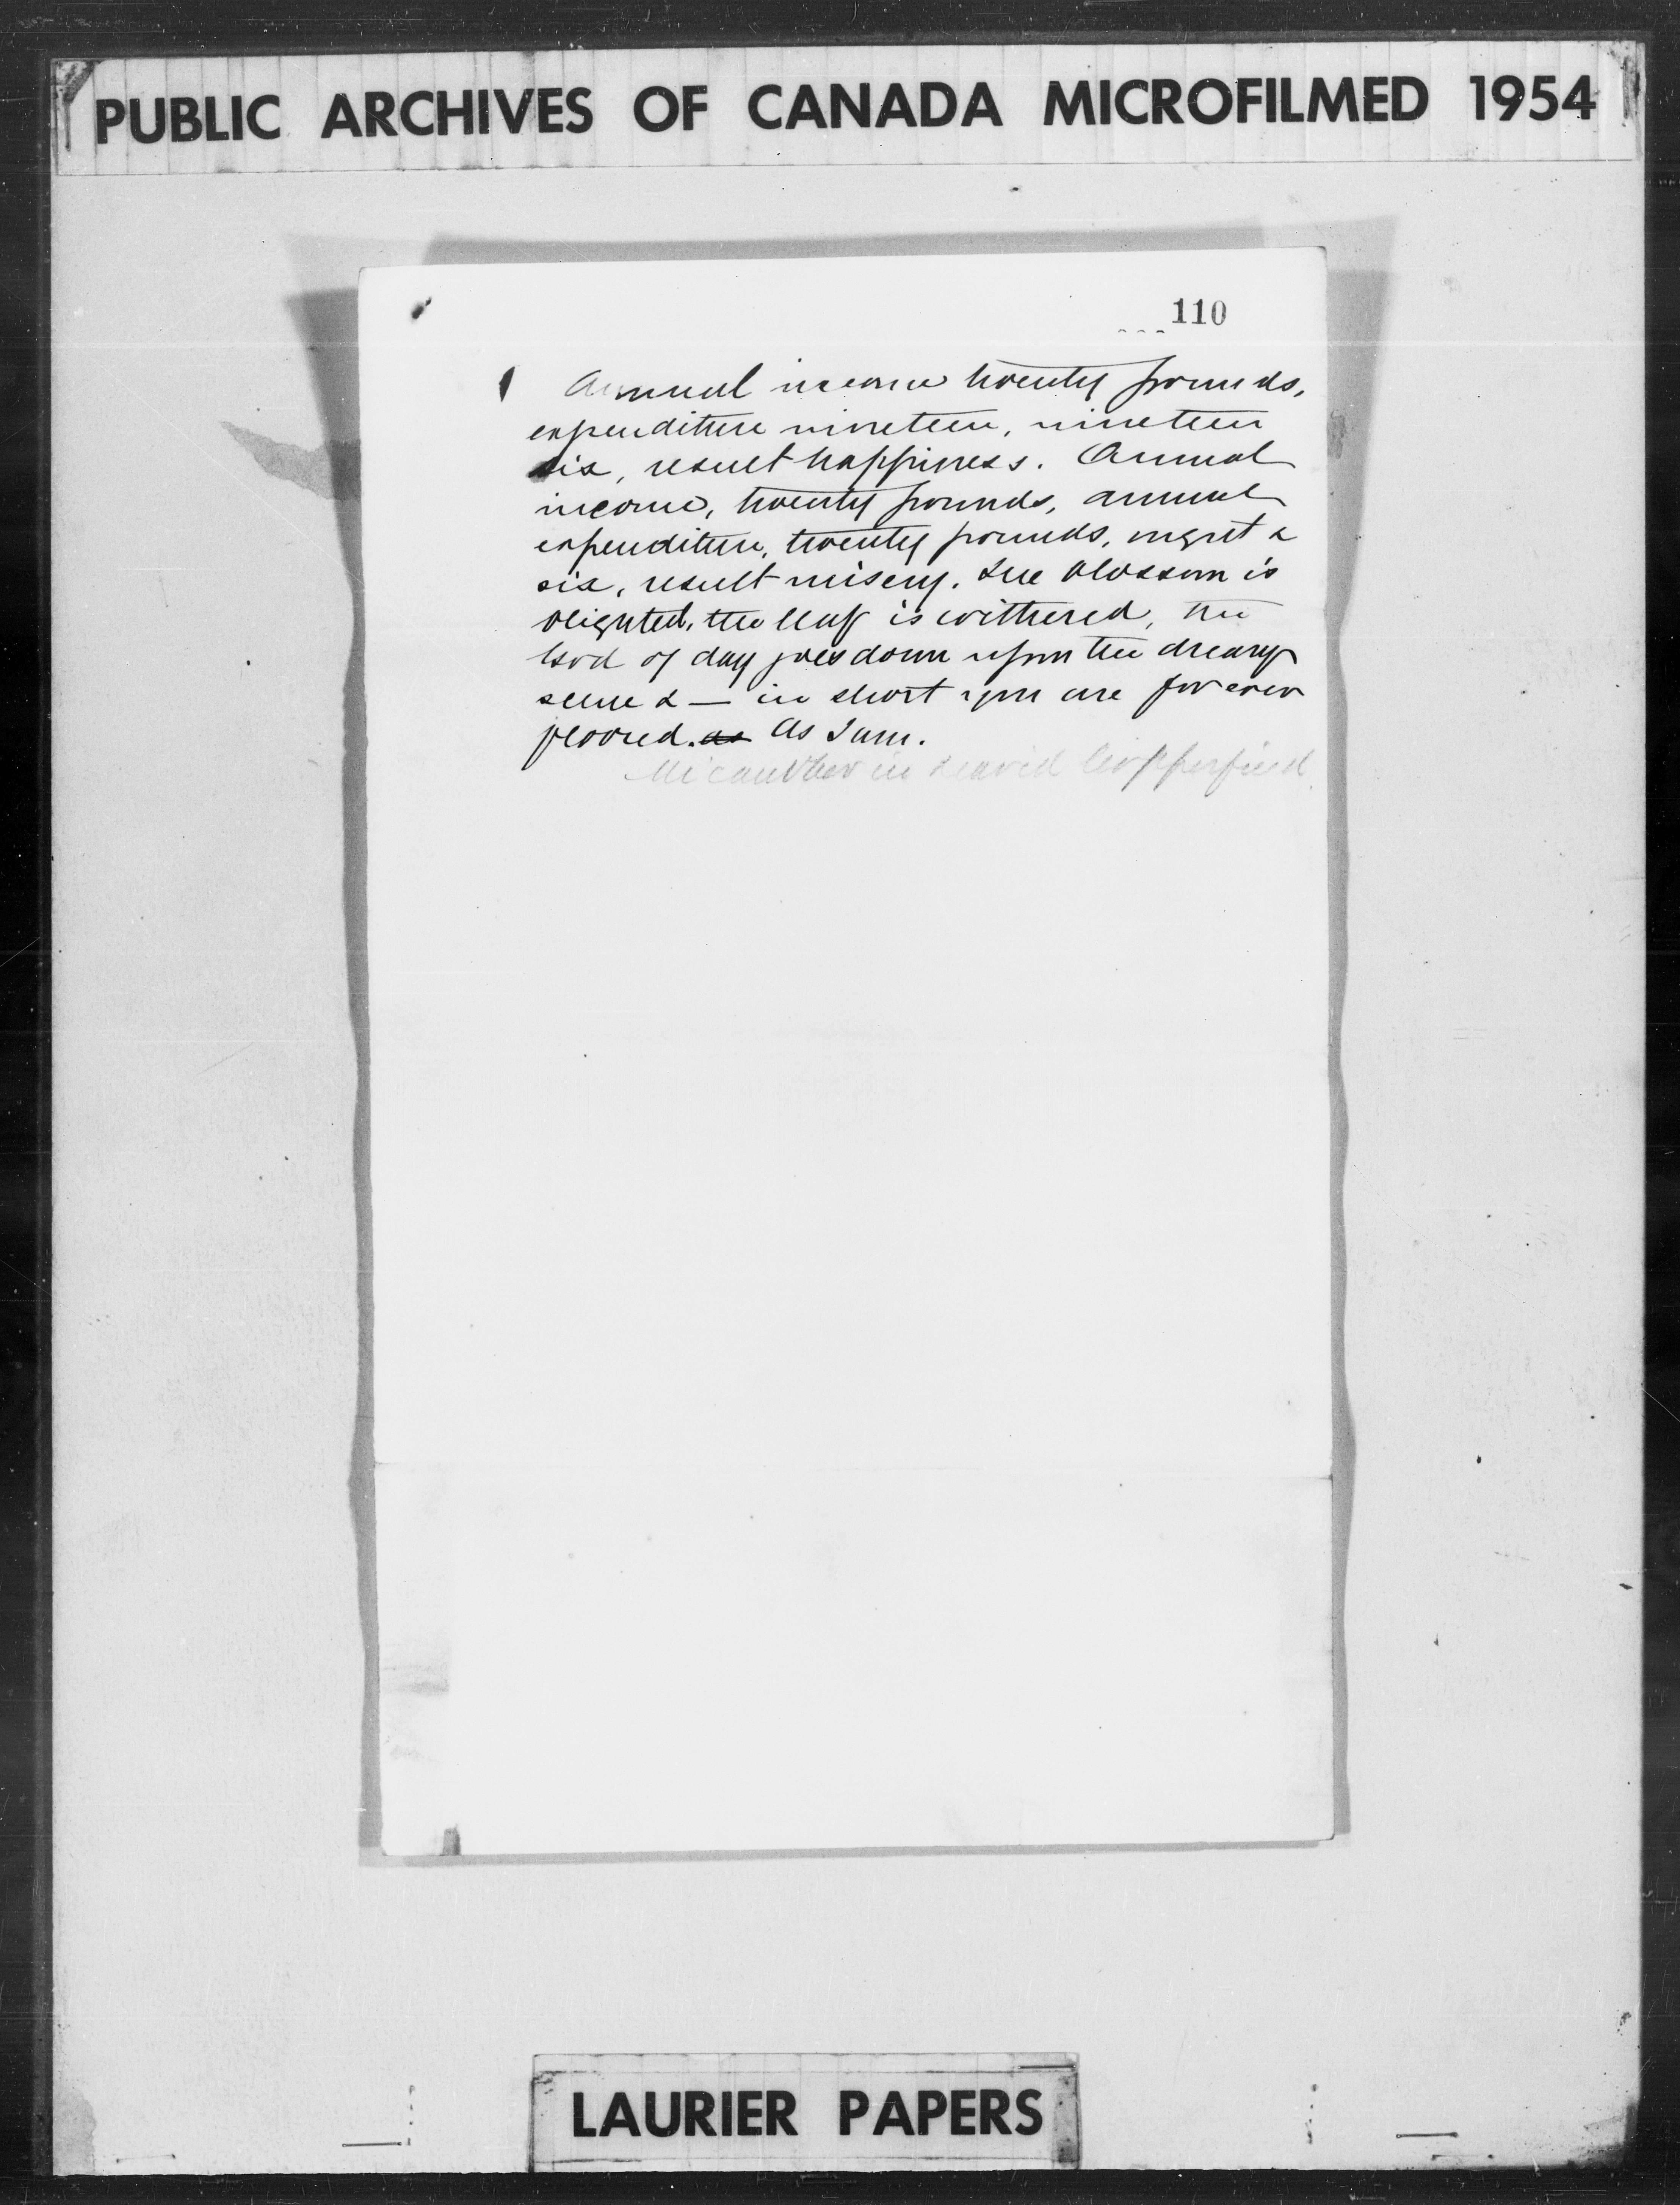 PUBLIC ARCHIVES OF CANADA MICROFILMED 1954
110
Annual income twenty pounds,
expenditure nineteen, nineteen
six, result happiness. Annual
income, twenty pounds, annual
expenditure, twenty pounds, ought &
six, result misery. The blossom is
blighted, the leaf is withered, the
God of day goes down upon the dreary
scene & — in short you are for ever
floored. as As I am.
Micawber in David Copperfield
LAURIER PAPERS